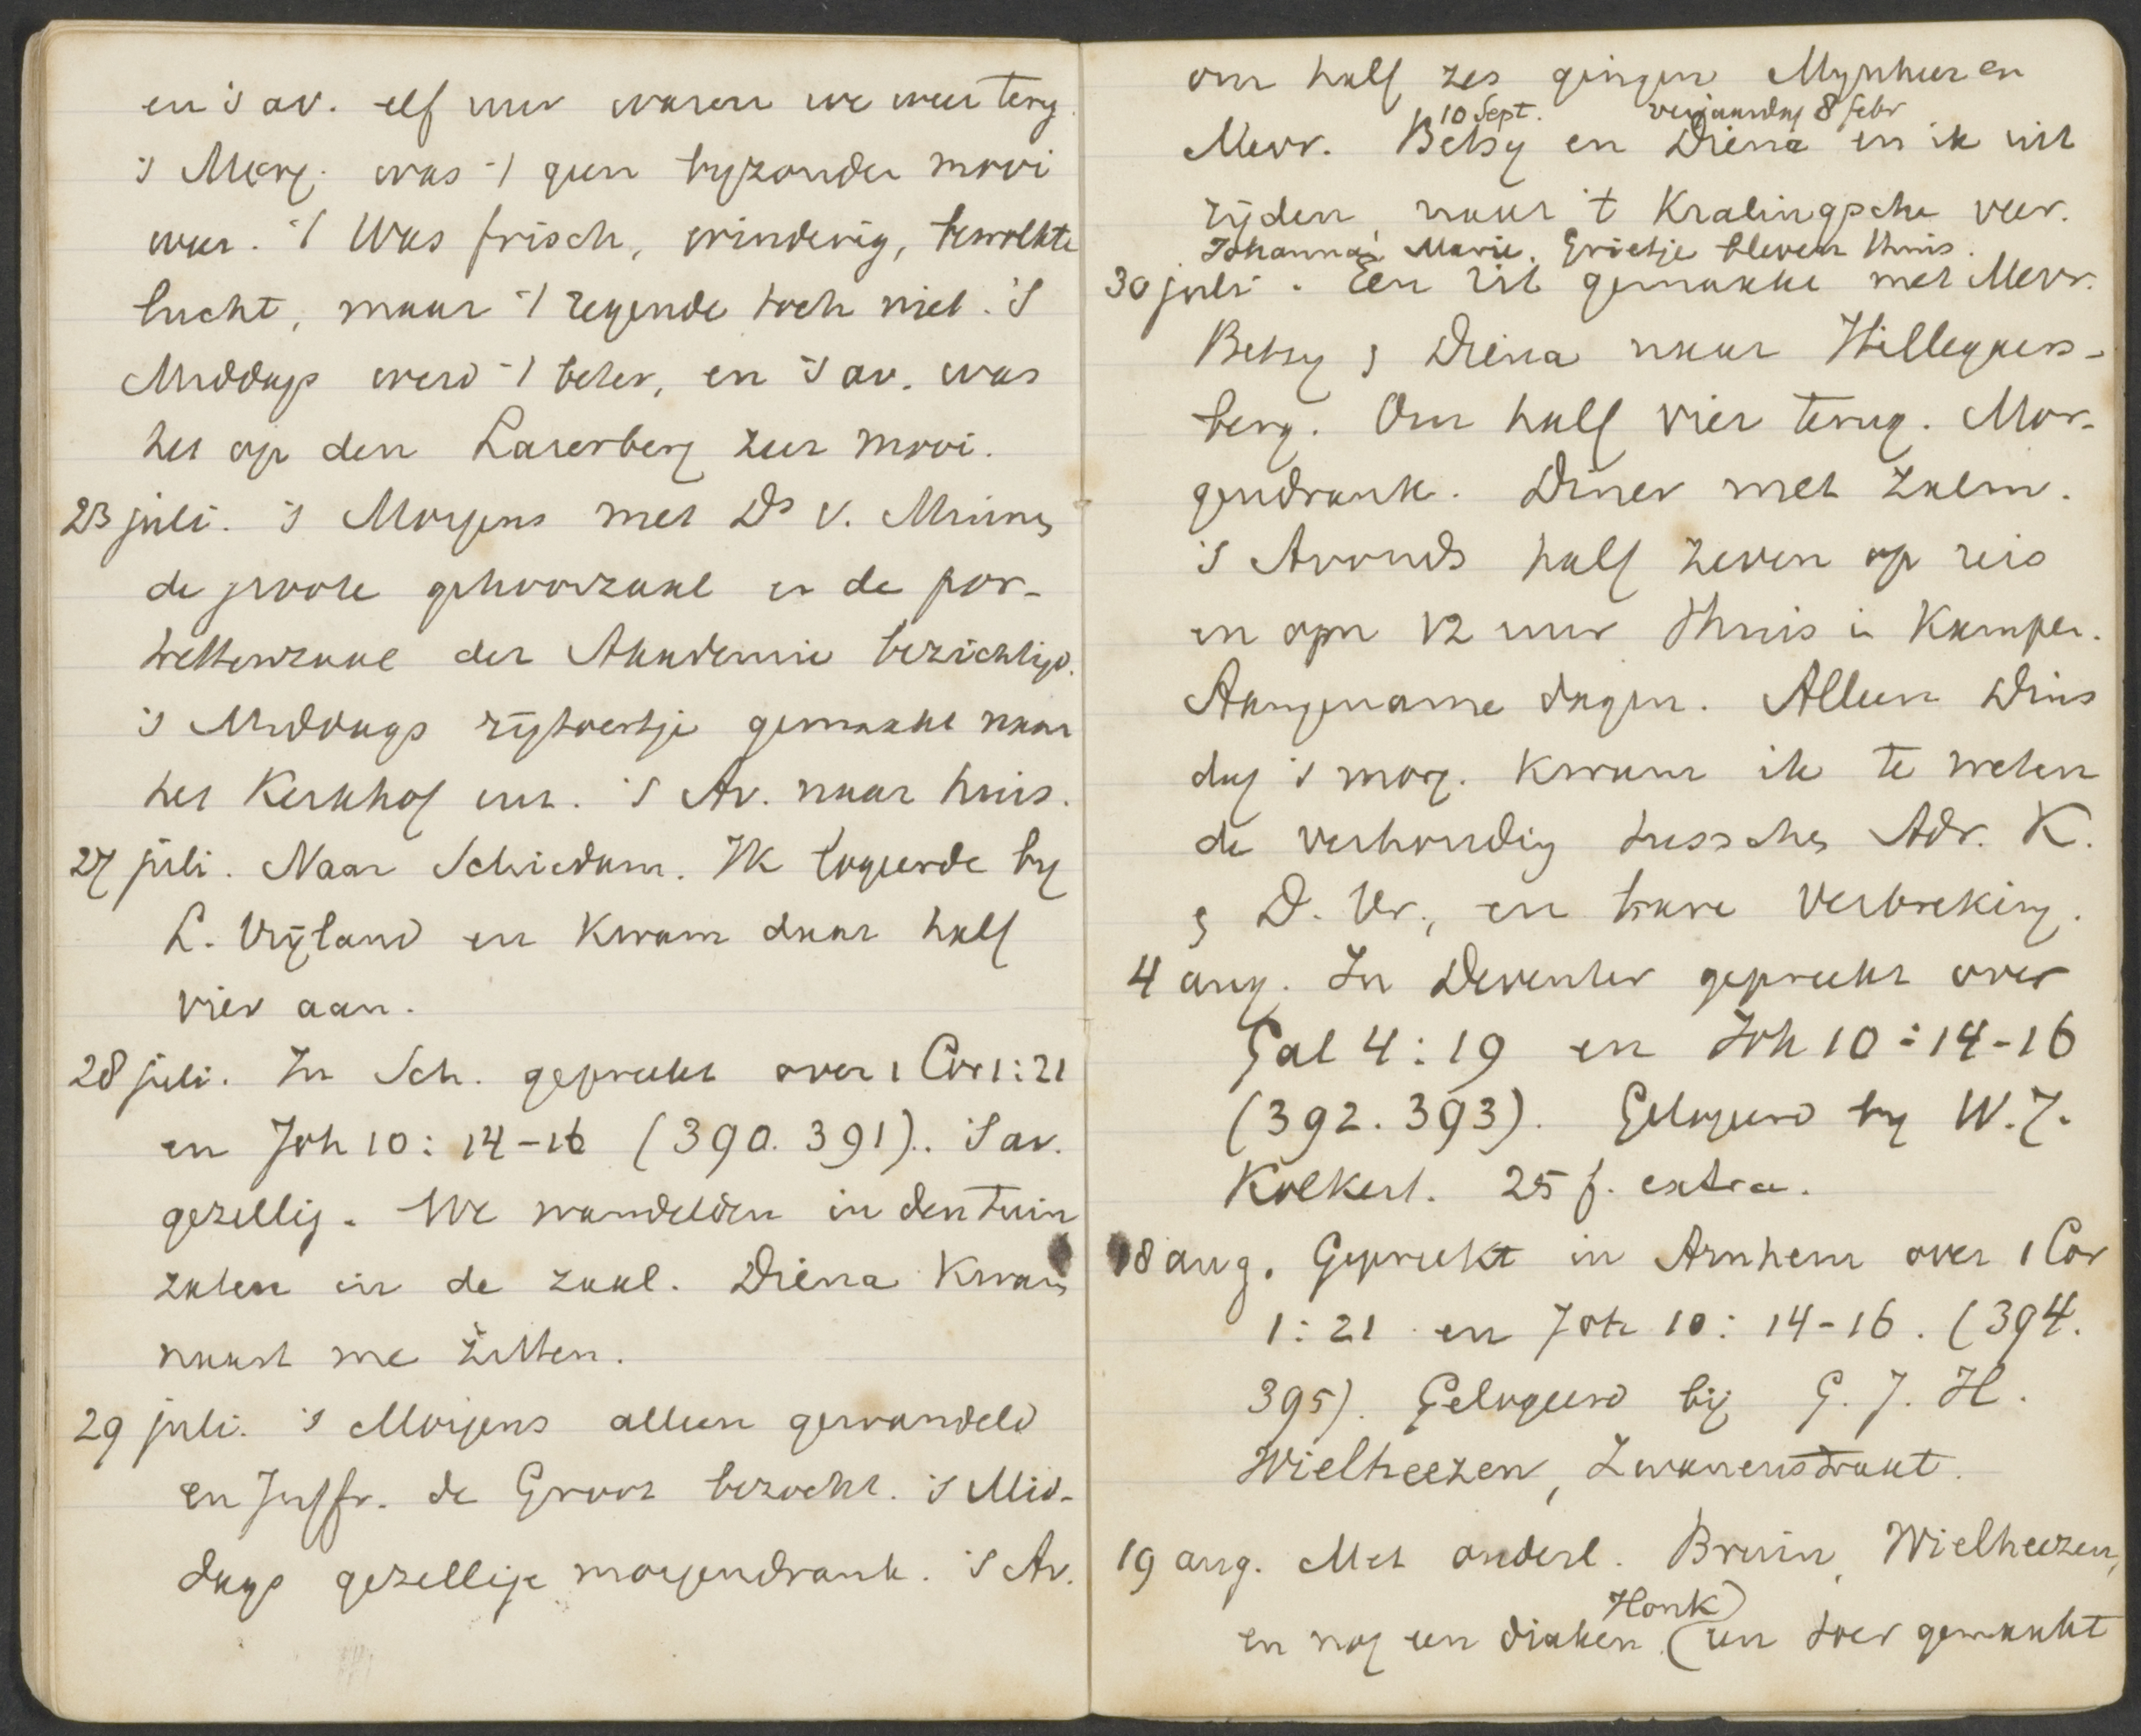 en 's av. elf uur waren we weer terg.
's Morg. was 't geen byzonder mooi
weer. 't Was frisch, winderig, bewolkte
lucht, maar 't regende toch niet. 's
Middags werd 't beter, en 's av. was
het op den Larerberg zeer mooi.
23 juli. 's Morgens met Ds v. Minnen
de groote gehoorzaal en de por-
trettenzaal der Akademie bezichtigd.
's Middags rijtoertje gemaakt naar
het Kerkhof enz. 's Av. naar huis.
27 juli. Naar Schiedam. Ik logeerde by
L. Vrijland en kwam daar half
vier aan.
28 juli. In Sch. gepreekt over 1 Cor 1:21
en Joh 10: 14-16 (390. 391). 's av.
gezellig. We wandelden in den tuin
zaten in de zaal. Diena kwam
naast me zitten.
29 juli. 's Morgens alleen gewandeld
en Juffr. de Groot bezocht. 's Mid-
dags gezellige morgendrank. 's Av.
om half zes gingen Mynheer en
10 Sept. verjaardag 8 febr
Mevr. Betsy en Diena en ik uit
rijden, naar 't Kralingsche veer.
Johanna, Marie, Grietje bleven thuis.
30 juli. Een rit gemaakt met Mevr.
Betsy & Diena naar Hillegaers-
berg. Om half vier terug. Mor-
gendrank. Diner met zalm.
's Avonds half zeven op reis
en opn 12 uur thuis in Kampen.
Aangename dagen. Alleen Dins
dag 's morg. kwam ik te weten
de verhoudig tusschen Adr. K.
& D. Vr., en hare verbreking.
4 aug. In Deventer gepreekt over
Gal 4:19 en Joh 10:14-16
(392. 393). Gelogeerd by W. J.
Kolkert. 25 f. extra.
18 aug. Gepreekt in Arnhem over 1 Cor
1:21 en Joh 10: 14-16. (394.
395). Gelogeerd bij G. J. H.
Wielheezen, Zwanenstraat.
19 aug. Met ouderl. Bruin, Wielheezen,
Honk)
en nog een diaken (een toer gemaakt